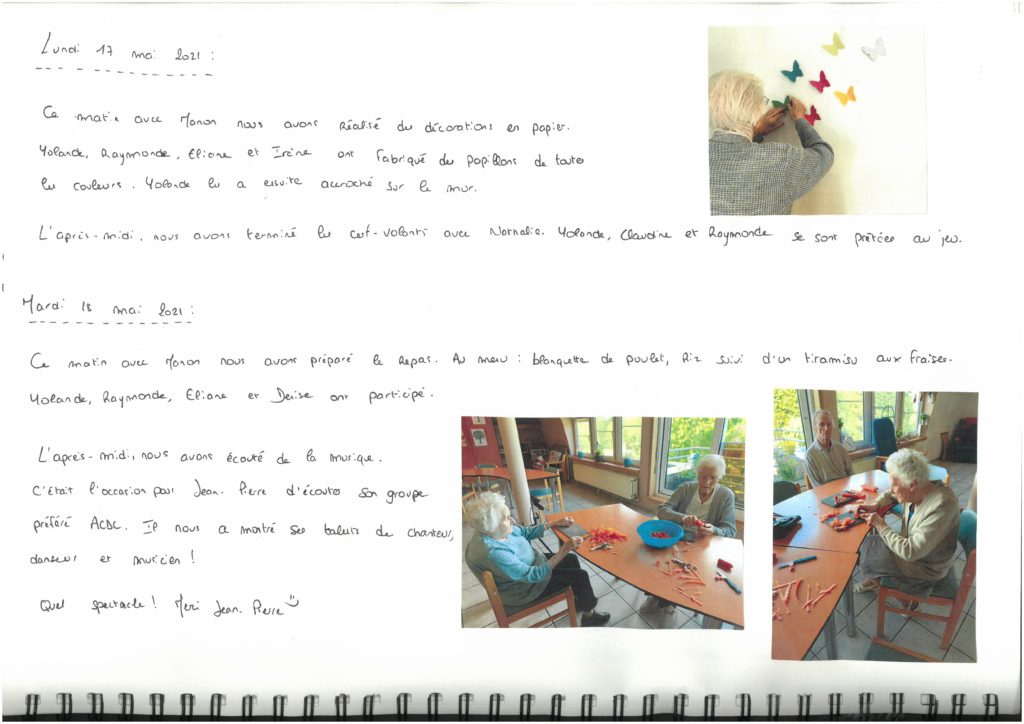 Lundi 17 mai 2021 :
Ce matin avec Manon nous avons réalisé des décorations en papier.
Yolande, Raymonde, Eliane et Irène ont fabriqué des papillons de toutes
les couleurs. Yolande les a ensuite accroché sur le mur.
L'après-midi, nous avons terminé les cerf-volants avec Nathalie. Yolande, Claudine et Raymonde se sont prêtées au jeu.
Mardi 18 mai 2021 :
Ce matin avec Manon nous avons préparé le repas. Au menu : blanquette de poulet, Riz suivi d'un tiramisu aux fraises.
Yolande, Raymonde, Eliane et Denise ont participé.
L'après-midi, nous avons écouté de la musique.
C'était l'occasion pour Jean-Pierre d'écouter son groupe
préféré ACDC. Il nous a montré ses talents de chanteur,
danseur et musicien !
Quel spectacle ! Merci Jean-Pierre